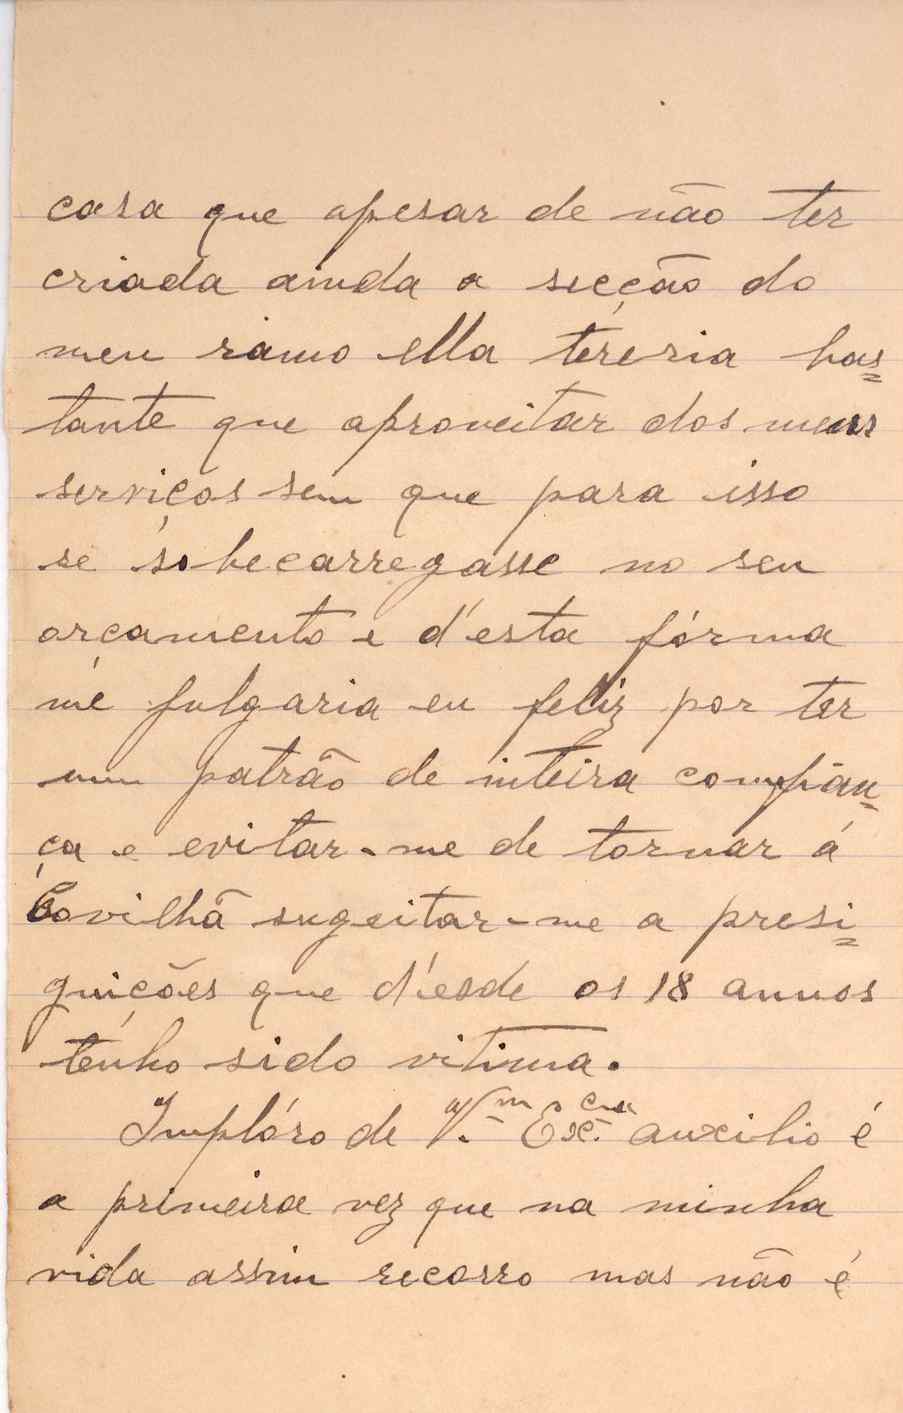 casa que apesar de não ter
criada ainda a secção do
meu ramo ella téreria bas=
tante que aproveitar dos meus
serviços sem que para isso
se sobecarregasse no seu
orçamento e d'esta fórma
me fulgaria eu feliz por ter
um patrão de inteira comfian=
ça e evitar-me de tornar á
Covilhã sugeitar-me a presi=
guições que d'esde os 18 annos
tenho sido vitima.
Implóro de V.m Ex.cia auxilio é
a primeira vez que na minha
vida assim recorro mas não é